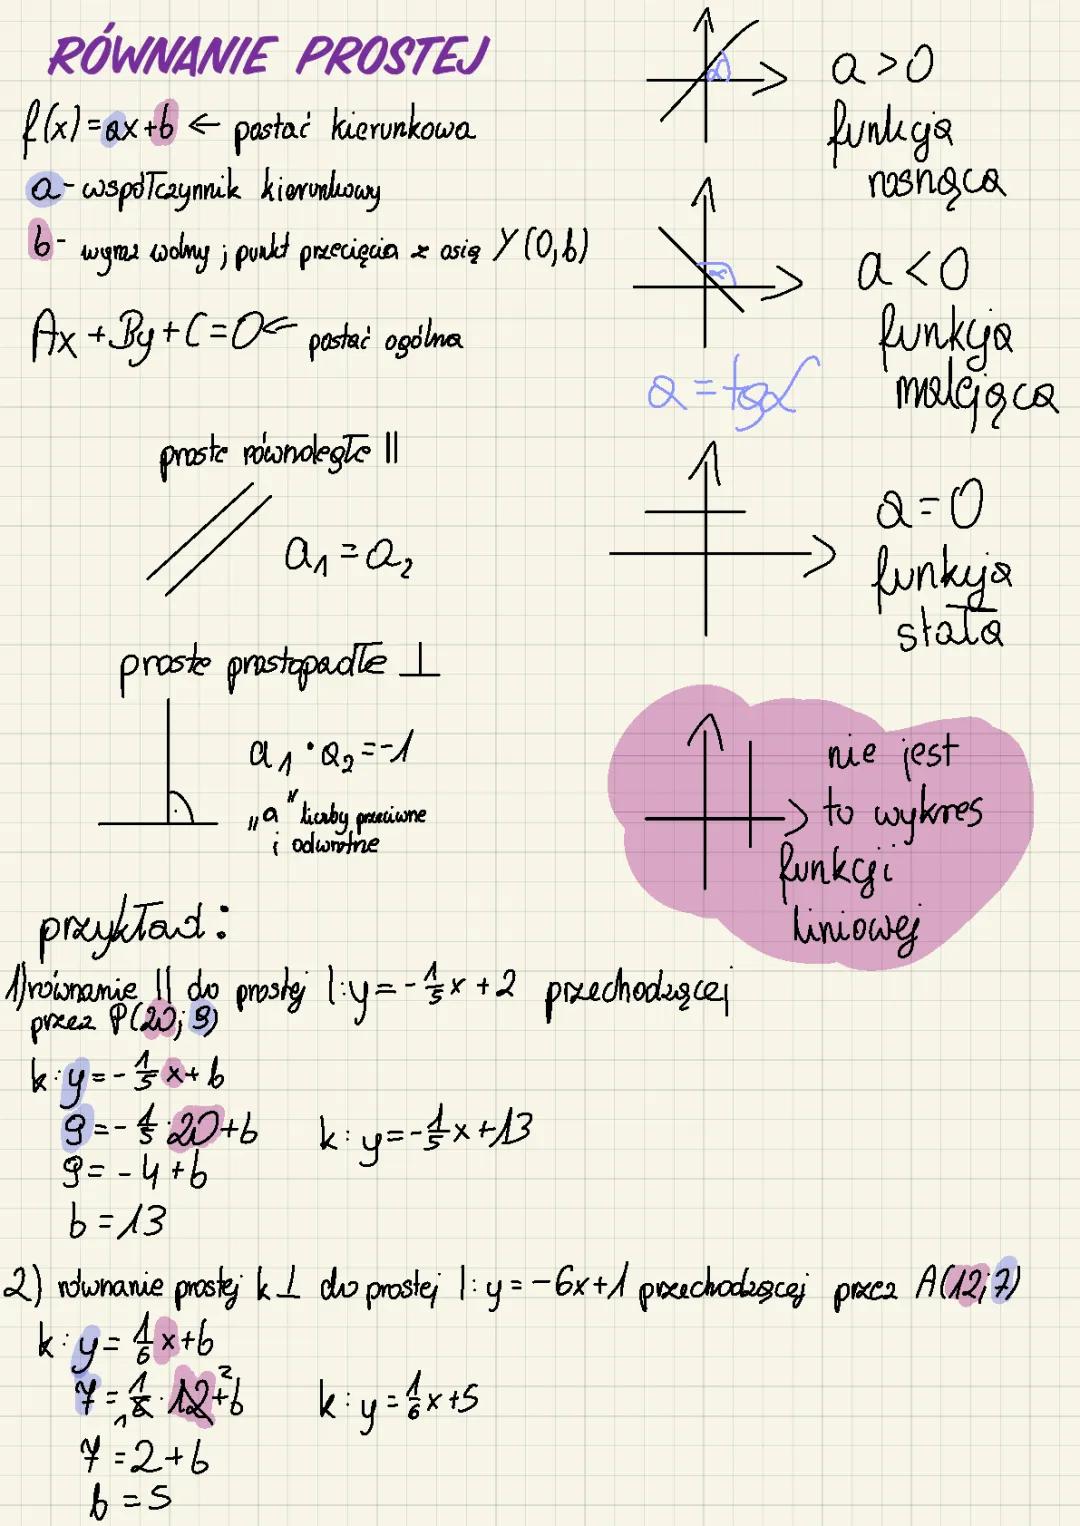 RÓWNANIE PROSTEJ
f(x)=ax+b ← postać kierunkowa
a - współczynnik kierunkowy
b - wyraz wolny; punkt przecięcia z osią Y (0,b)
Ax + By + C = 0 ← postać ogólna
proste równoległe ||
a₁ = a₂
proste prostopadłe ⊥
a₁ · a₂ = -1
„a" liczby przeciwne
i odwrotne
α
a > 0
funkcja
rosnąca
α
a < 0
funkcja
malejąca
a = tgα
a = 0
funkcja
stała
nie jest
to wykres
funkcji
liniowej
przykład:
1) równanie || do prostej l: y = - 1/5 x + 2 przechodzącej
przez P(20; 9)
k: y = - 1/5 x + b
9 = - 1/5 · 20 + b
9 = - 4 + b
b = 13
k: y = - 1/5 x + 13
2) równanie prostej k ⊥ do prostej l: y = -6x+1 przechodzącej przez A(12; 7)
k: y = 1/6 x + b
7 = 1/6 1 · 12 2 + b
7 = 2 + b
b = 5
k: y = 1/6 x + 5